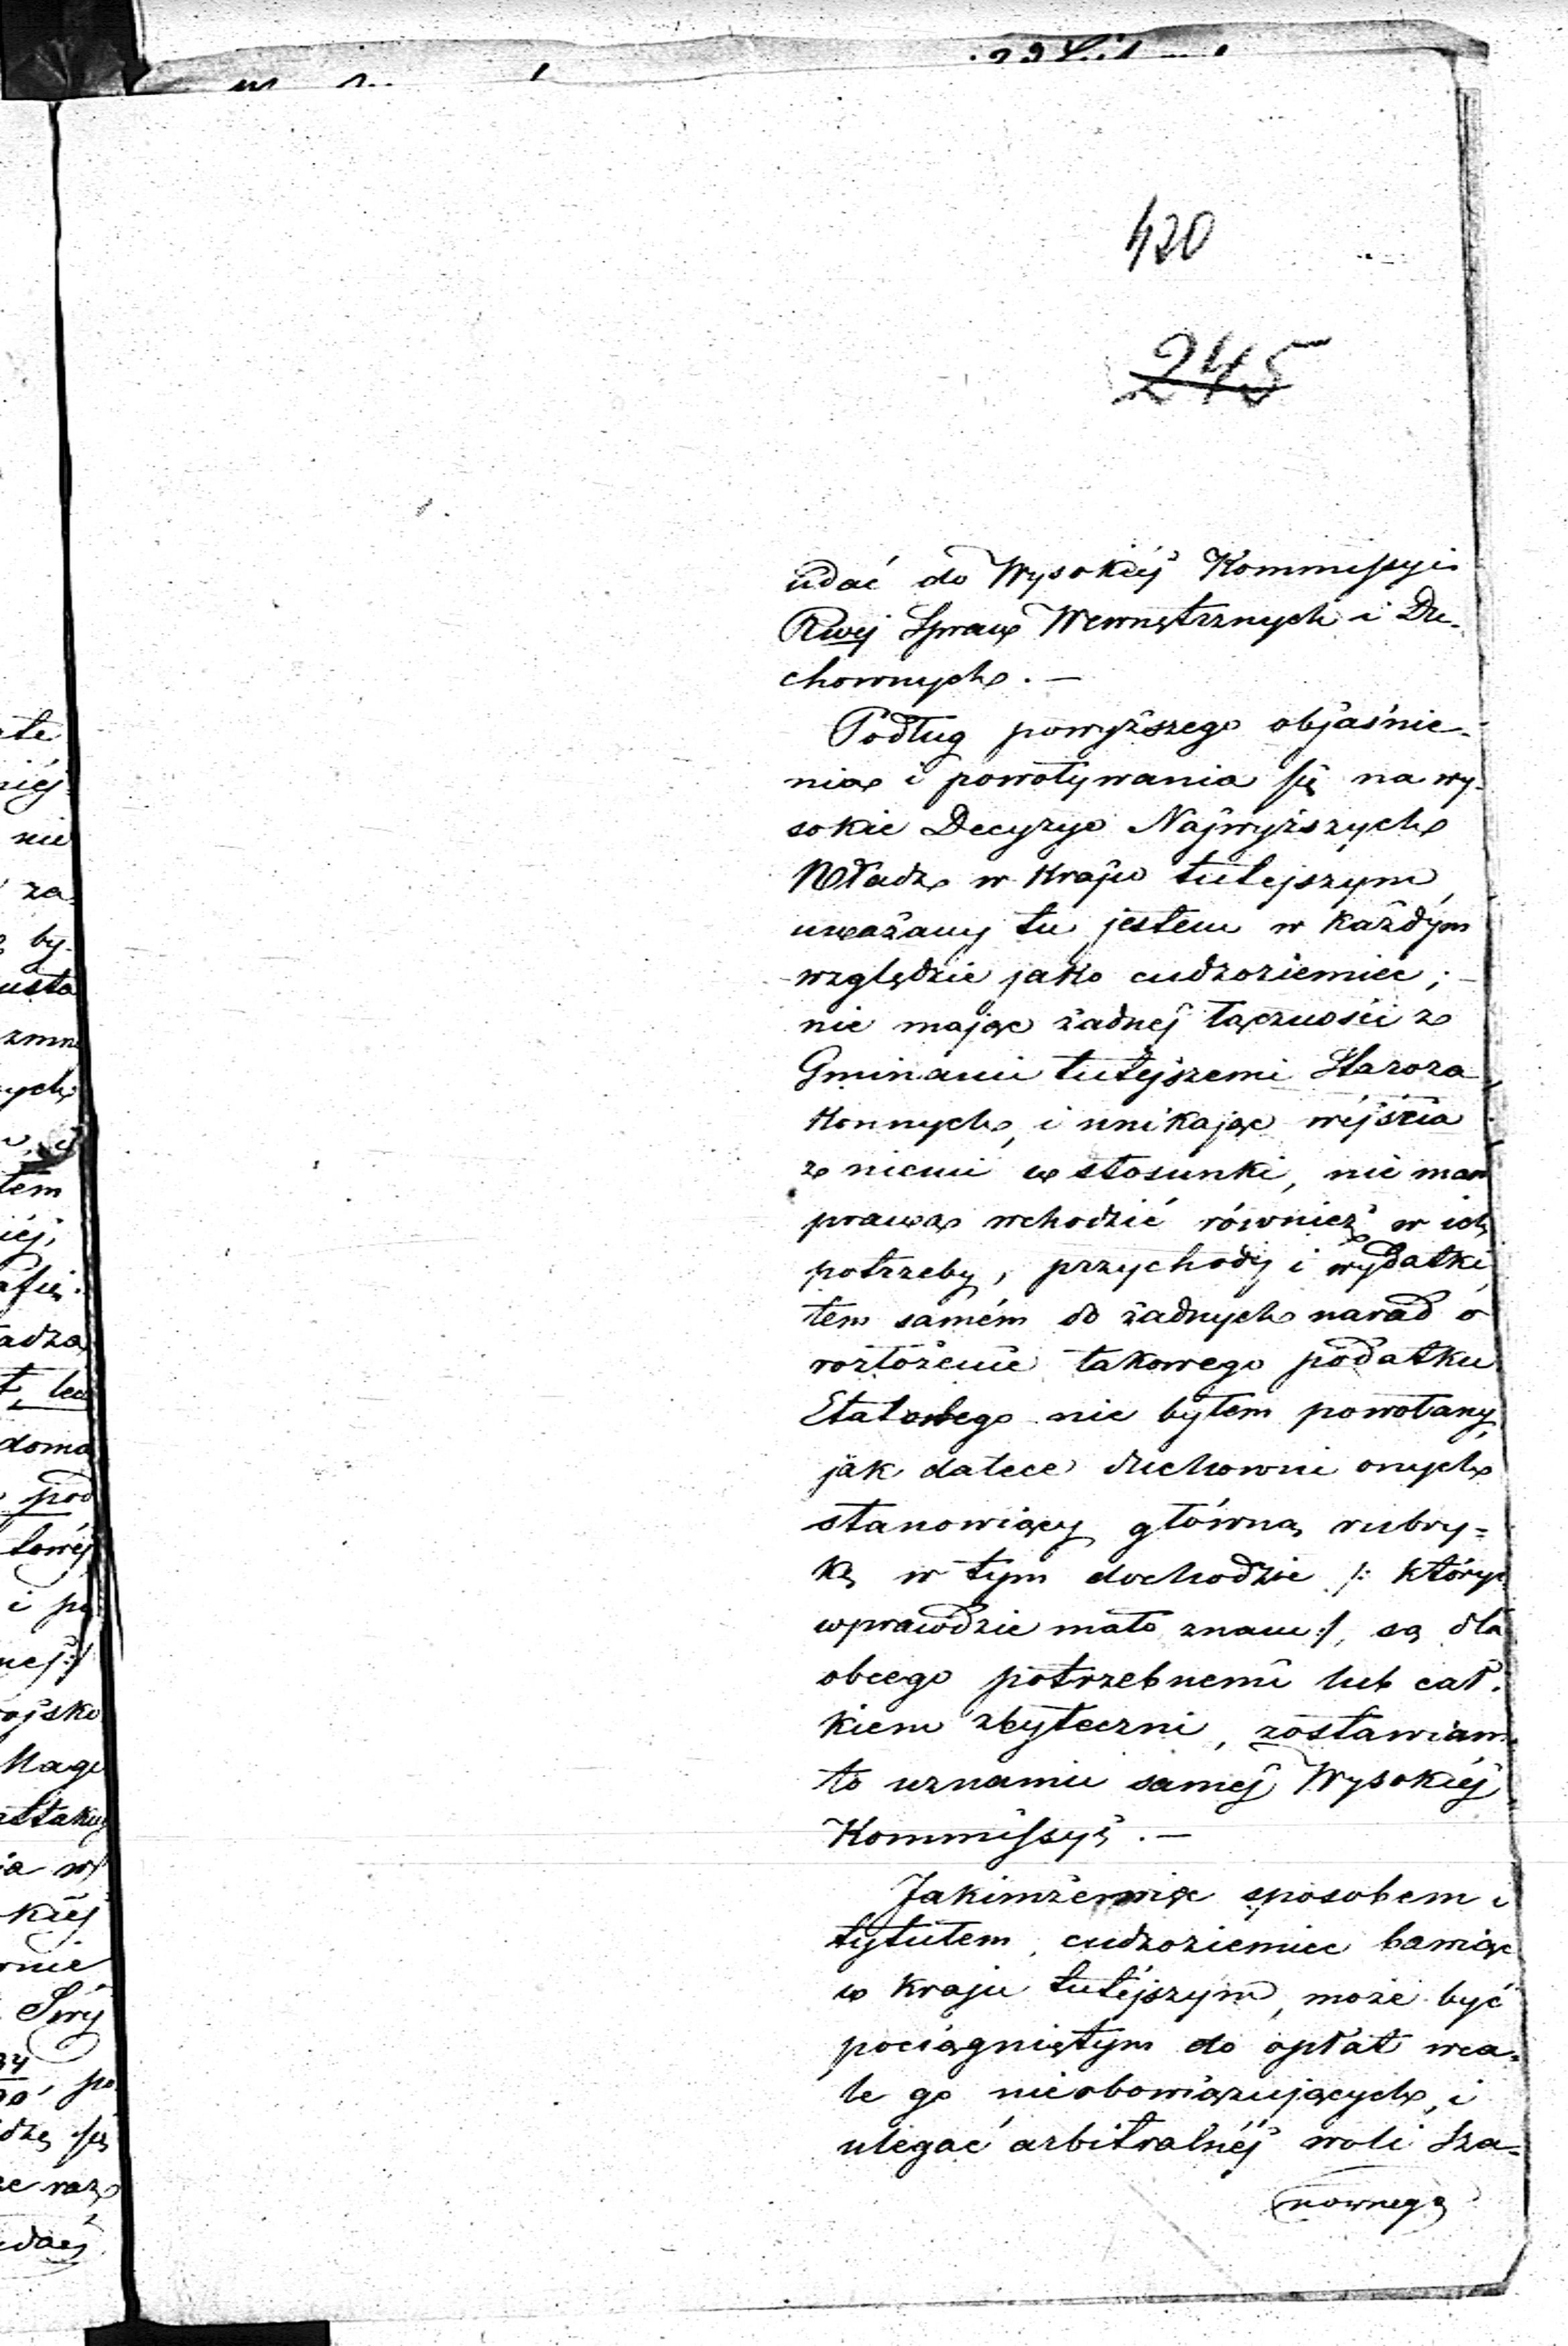 420
245
udać do Wysokiéj Kommissyi
Rwéj Spraw Wewnętrznych i Du-
chownych. —
Podług powyższego objaśnie-
nia i powoływania się na wy-
sokie Decyzye Najwyższych
Władz w Kraju tutejszym,
uważany tu jestem w każdym
względzie jako cudzoziemiec; —
nie mając żadnéj łączności z
Gminami tutejszemi Staroza-
konnych, i unikając wéjścia
z niemi w stosunki, nie mam
prawa wchodzić również w ich
potrzeby, przychody i wydatki,
tem samém do żadnych narad o
rozłożenie takowego podatku
Etatowego nie byłem powołany,
jak dalece duchowni onych
stanowiący główną rubry-
kę w tym dochodzie /: których
wprawdzie mało znam :/, są dla
obcego potrzebnemi lub cał-
kiem zbyteczni, zostawiam
to uznaniu saméj Wysokiéj
Kommissyi. —
Jakimże więc sposobem i
tytułem, cudzoziemiec bawiąc
w kraju tutéjszym, może być
pociągniętym do opłat wca-
le go nieobowiązujących, i
ulegać arbitralnéj woli Sza-
nownego
ate
niéj
nie
za
by-
usta
zmn
ych
tem
iéj,
adza
doma
pod
towéj
i po
ojsko
Mage
ia w
kiéj
wnie
Swéj
po
dzę się
ze raz
udać